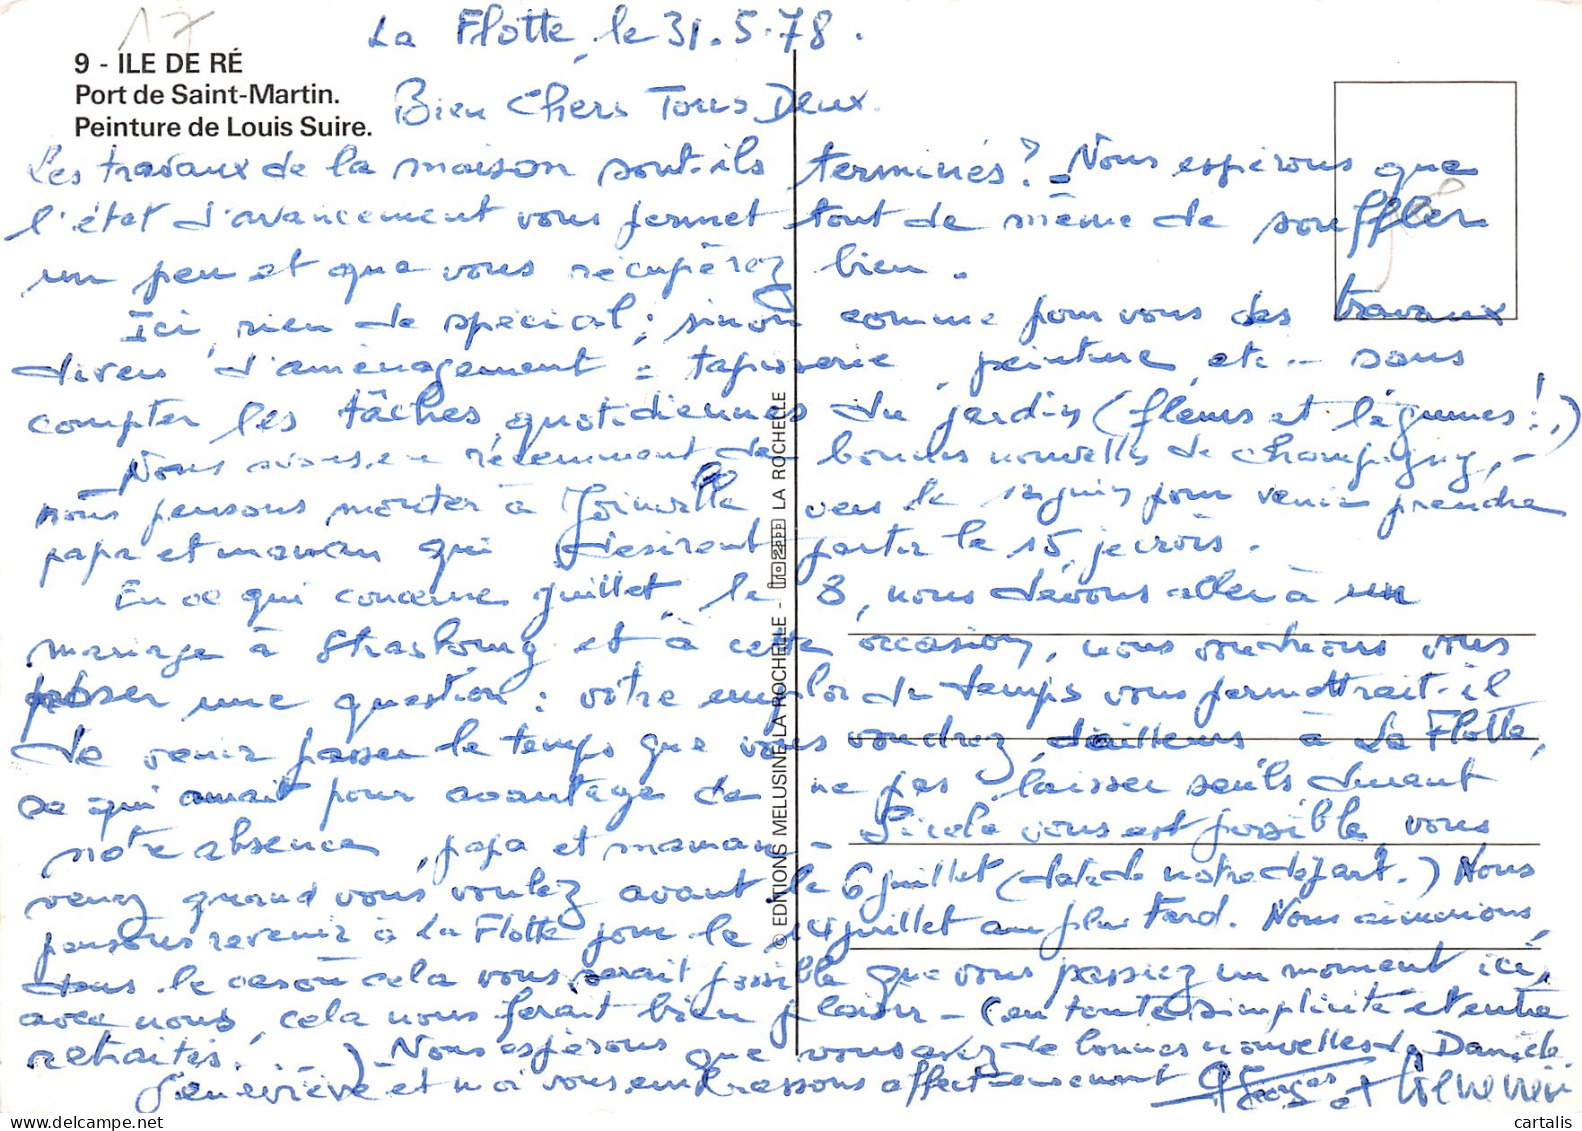 17
La Flotte, le 31.5.78.
9 - ILE DE RÉ
Port de Saint-Martin.
Peinture de Louis Suire.
Bien Chers Tous Deux.
Les travaux de la maison sont-ils terminés? - Nous espérons que
l'état d'avancement vous permet tout de même de souffler
un peu et que vous récupérez bien.
Ici, rien de spécial; sinon comme pour vous des travaux
divers d'aménagement = tapisserie, peinture, etc... sans
compter les tâches quotidiennes du jardin (fleurs et légumes!..)
Nous avons eu récemment de bonnes nouvelles de Champigny, -
nous pensons monter à Joinville vers le 12 juin pour venir prendre
papa et maman qui désirent partir le 15, je crois.
En ce qui concerne juillet, le 8, nous devons aller à un
mariage à Strasbourg et à cette occasion, nous voudrions vous
poser une question: votre emploi du temps vous permettrait-il
de venir passer le temps que vous voudrez, d'ailleurs à La Flotte,
ce qui aurait pour avantage de ne pas laisser seuls durant
notre absence, papa et maman - Si cela vous est possible, vous
venez quand vous voulez avant le 6 juillet (date de notre départ.) Nous
pensons revenir à La Flotte pour le 14 juillet au plus tard. Nous aimerions,
dans le cas où cela vous serait possible que vous passiez un moment ici,
avec nous, cela nous ferait bien plaisir - (en toute simplicité et entre
retraités!..) Nous espérons que vous avez de bonnes nouvelles de Danièle
Geneviève et moi vous embrassons affectueusement Georges et Geneviève
© EDITIONS MELUSINE LA ROCHELLE - LA ROCHELLE
cartalis